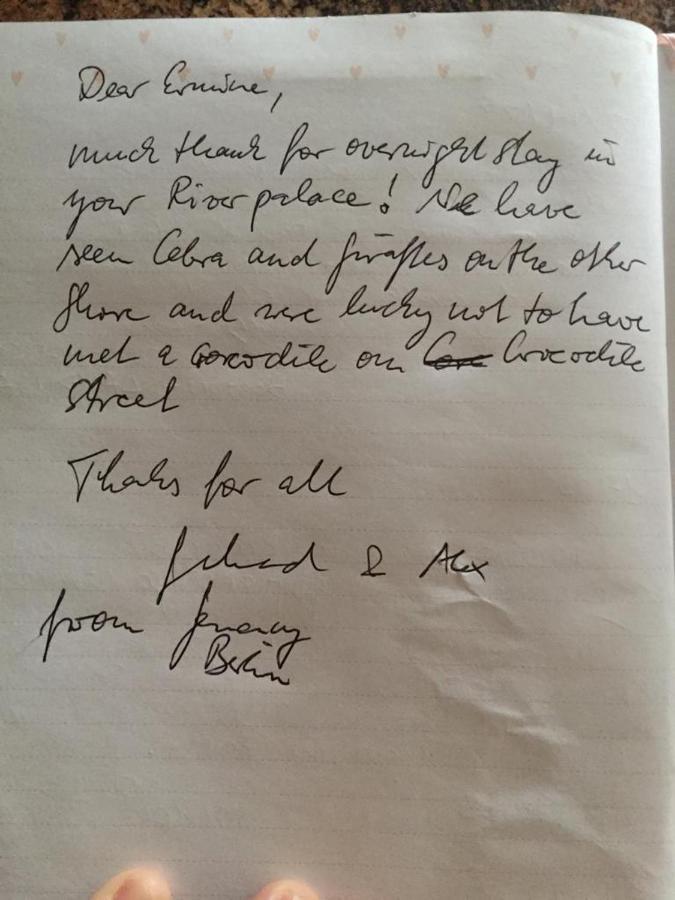 Dear Ermine,
much thank for overnight stay in
your River palace! We have
seen Cebra and giraffes on the other
Shore and were lucky not to have
met a crocodile on Crocodile
Street
Thanks for all
& Alex
from Germany
Berlin